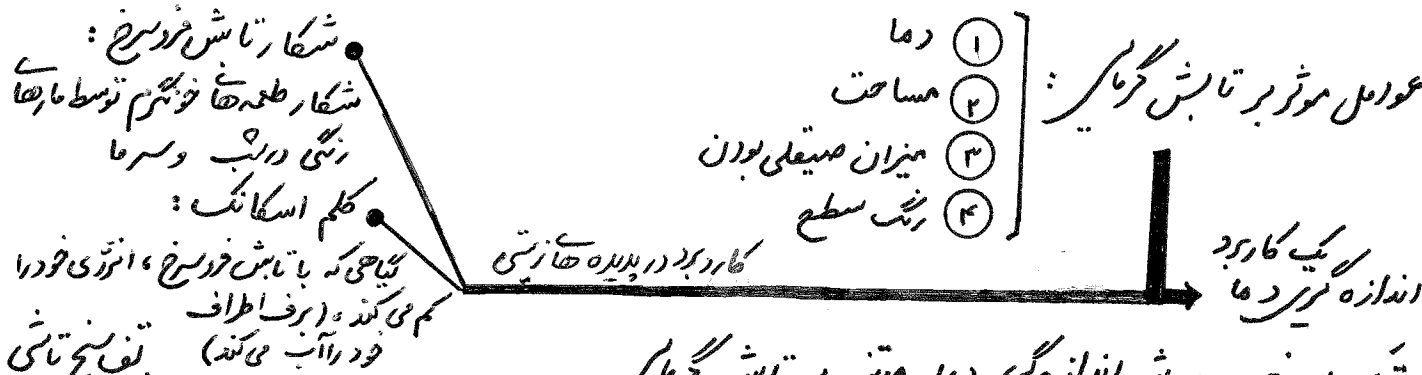 عوامل موثر بر تابش گرمایی :
۱ دما
۲ مساحت
۳ میزان صیقلی بودن
۴ رنگ سطح
یک کاربرد
اندازه گیری دما
کاربرد در پدیده های زیستی
شکار تابش فروسرخ :
شکار طعمه های خونگرم توسط مارهای
زنگی در شب و سرما
کلم اسکانک :
گیاهی که با تابش فروسرخ ، انرژی خود را
کم می کند ، (برف اطراف
خود را آب می کند)
تف سنج تابشی
اندازه گیری دما مبتنی بر تابش گرمایی